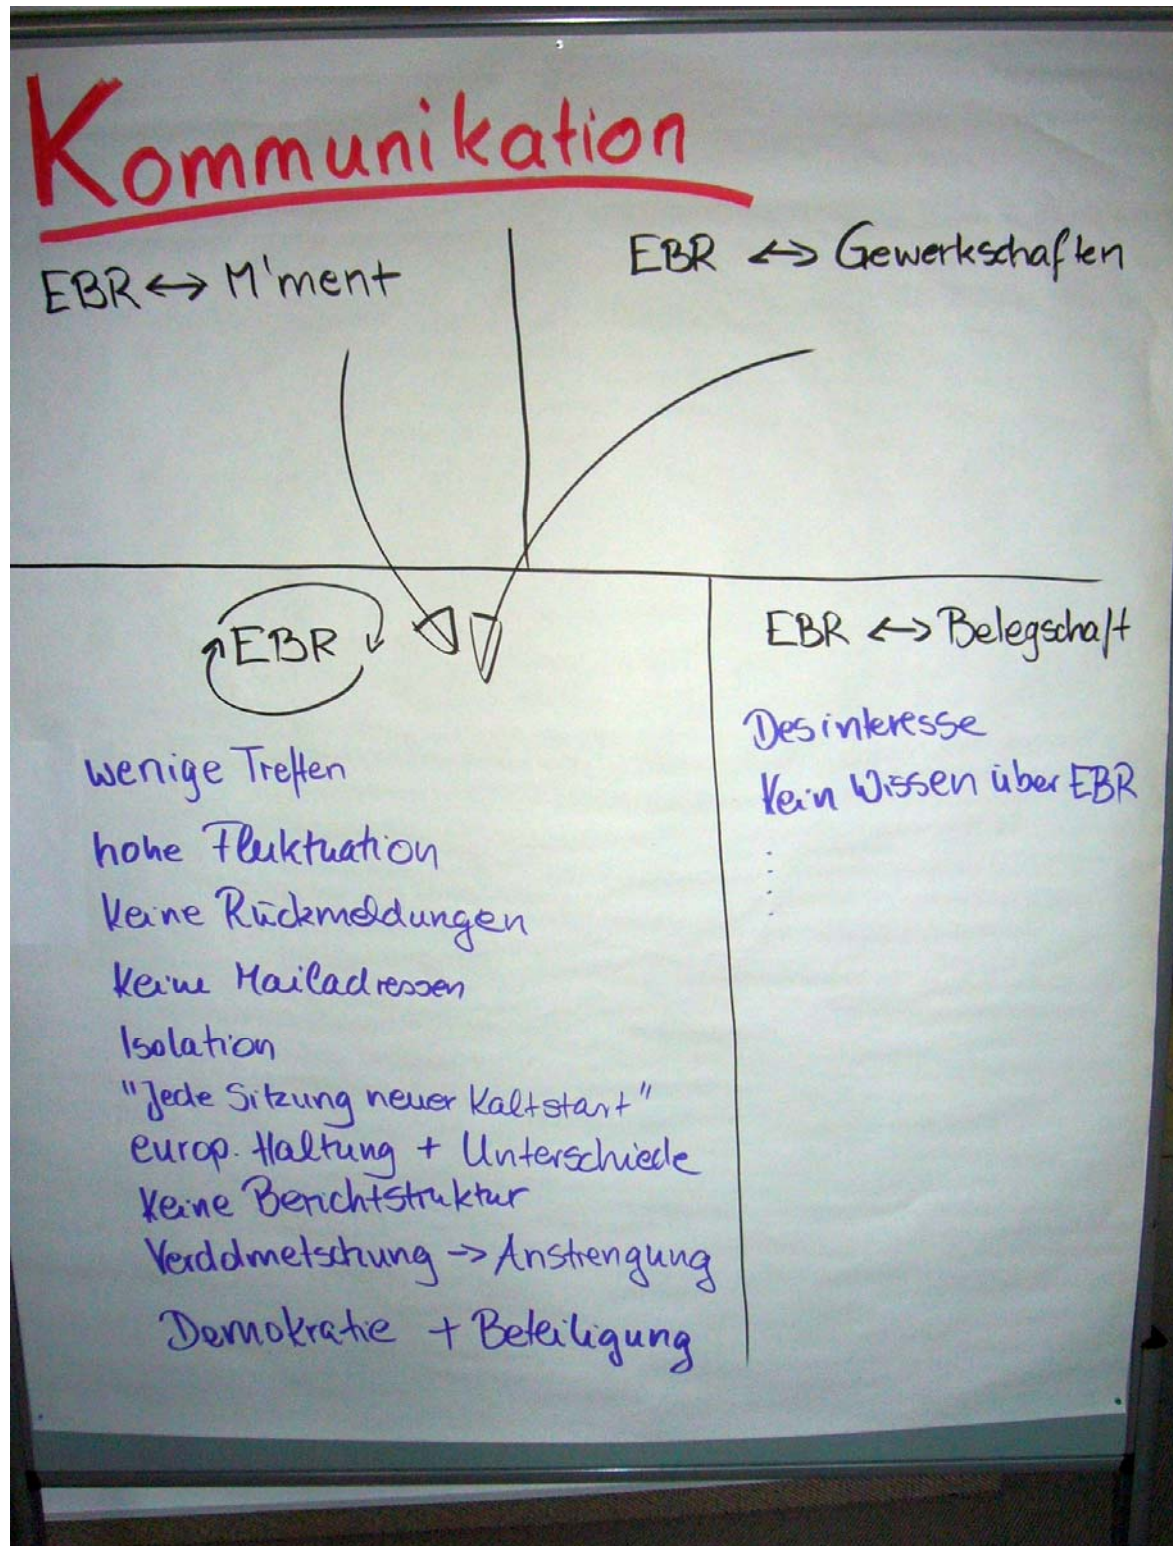 Kommunikation
EBR ↔ M'ment
EBR ↔ Gewerkschaften
EBR
wenige Treffen
hohe Fluktuation
keine Rückmeldungen
keine Mailadressen
Isolation
"Jede Sitzung neuer Kaltstart"
europ. Haltung + Unterschiede
keine Berichtstruktur
Verdolmetschung → Anstrengung
Demokratie + Beteiligung
EBR ↔ Belegschaft
Desinteresse
kein Wissen über EBR